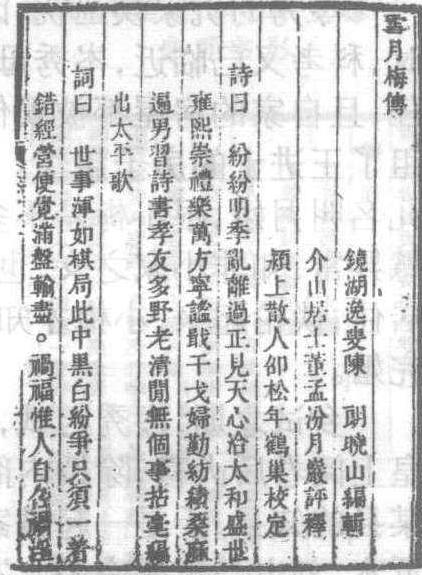 雪月梅傳
鏡湖逸叟陳 朗曉山編輯
介山居士董孟汾月巖評釋
潁上散人邵松年鶴巢校定
詩曰 紛紛明季亂離過正見天心洽太和盛世
雍熙崇禮樂萬方寧謐戢干戈婦勤紡績桑麻
遍男習詩書孝友多野老清閒無個事拈毫編
出太平歌
詞曰 世事渾如棋局此中黑白紛爭只須一着
錯經營便覺滿盤輸盡。禍福惟人自召禍